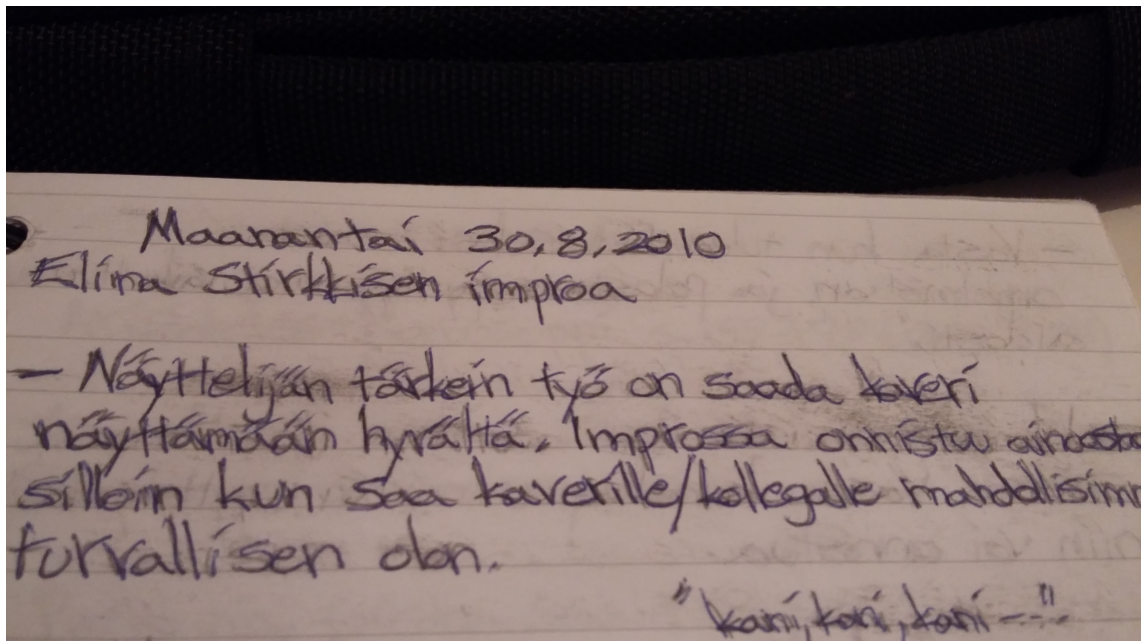 Maanantai 30.8.2010
Elina Stirkkisen improa
– Näyttelijän tärkein työ on saada kaveri
näyttämään hyvältä. Improssa onnistuu ainoasta
silloin kun saa kaverille/kollegalle mahdollisimm
turvallisen olon.
"kani, kani, kani --"